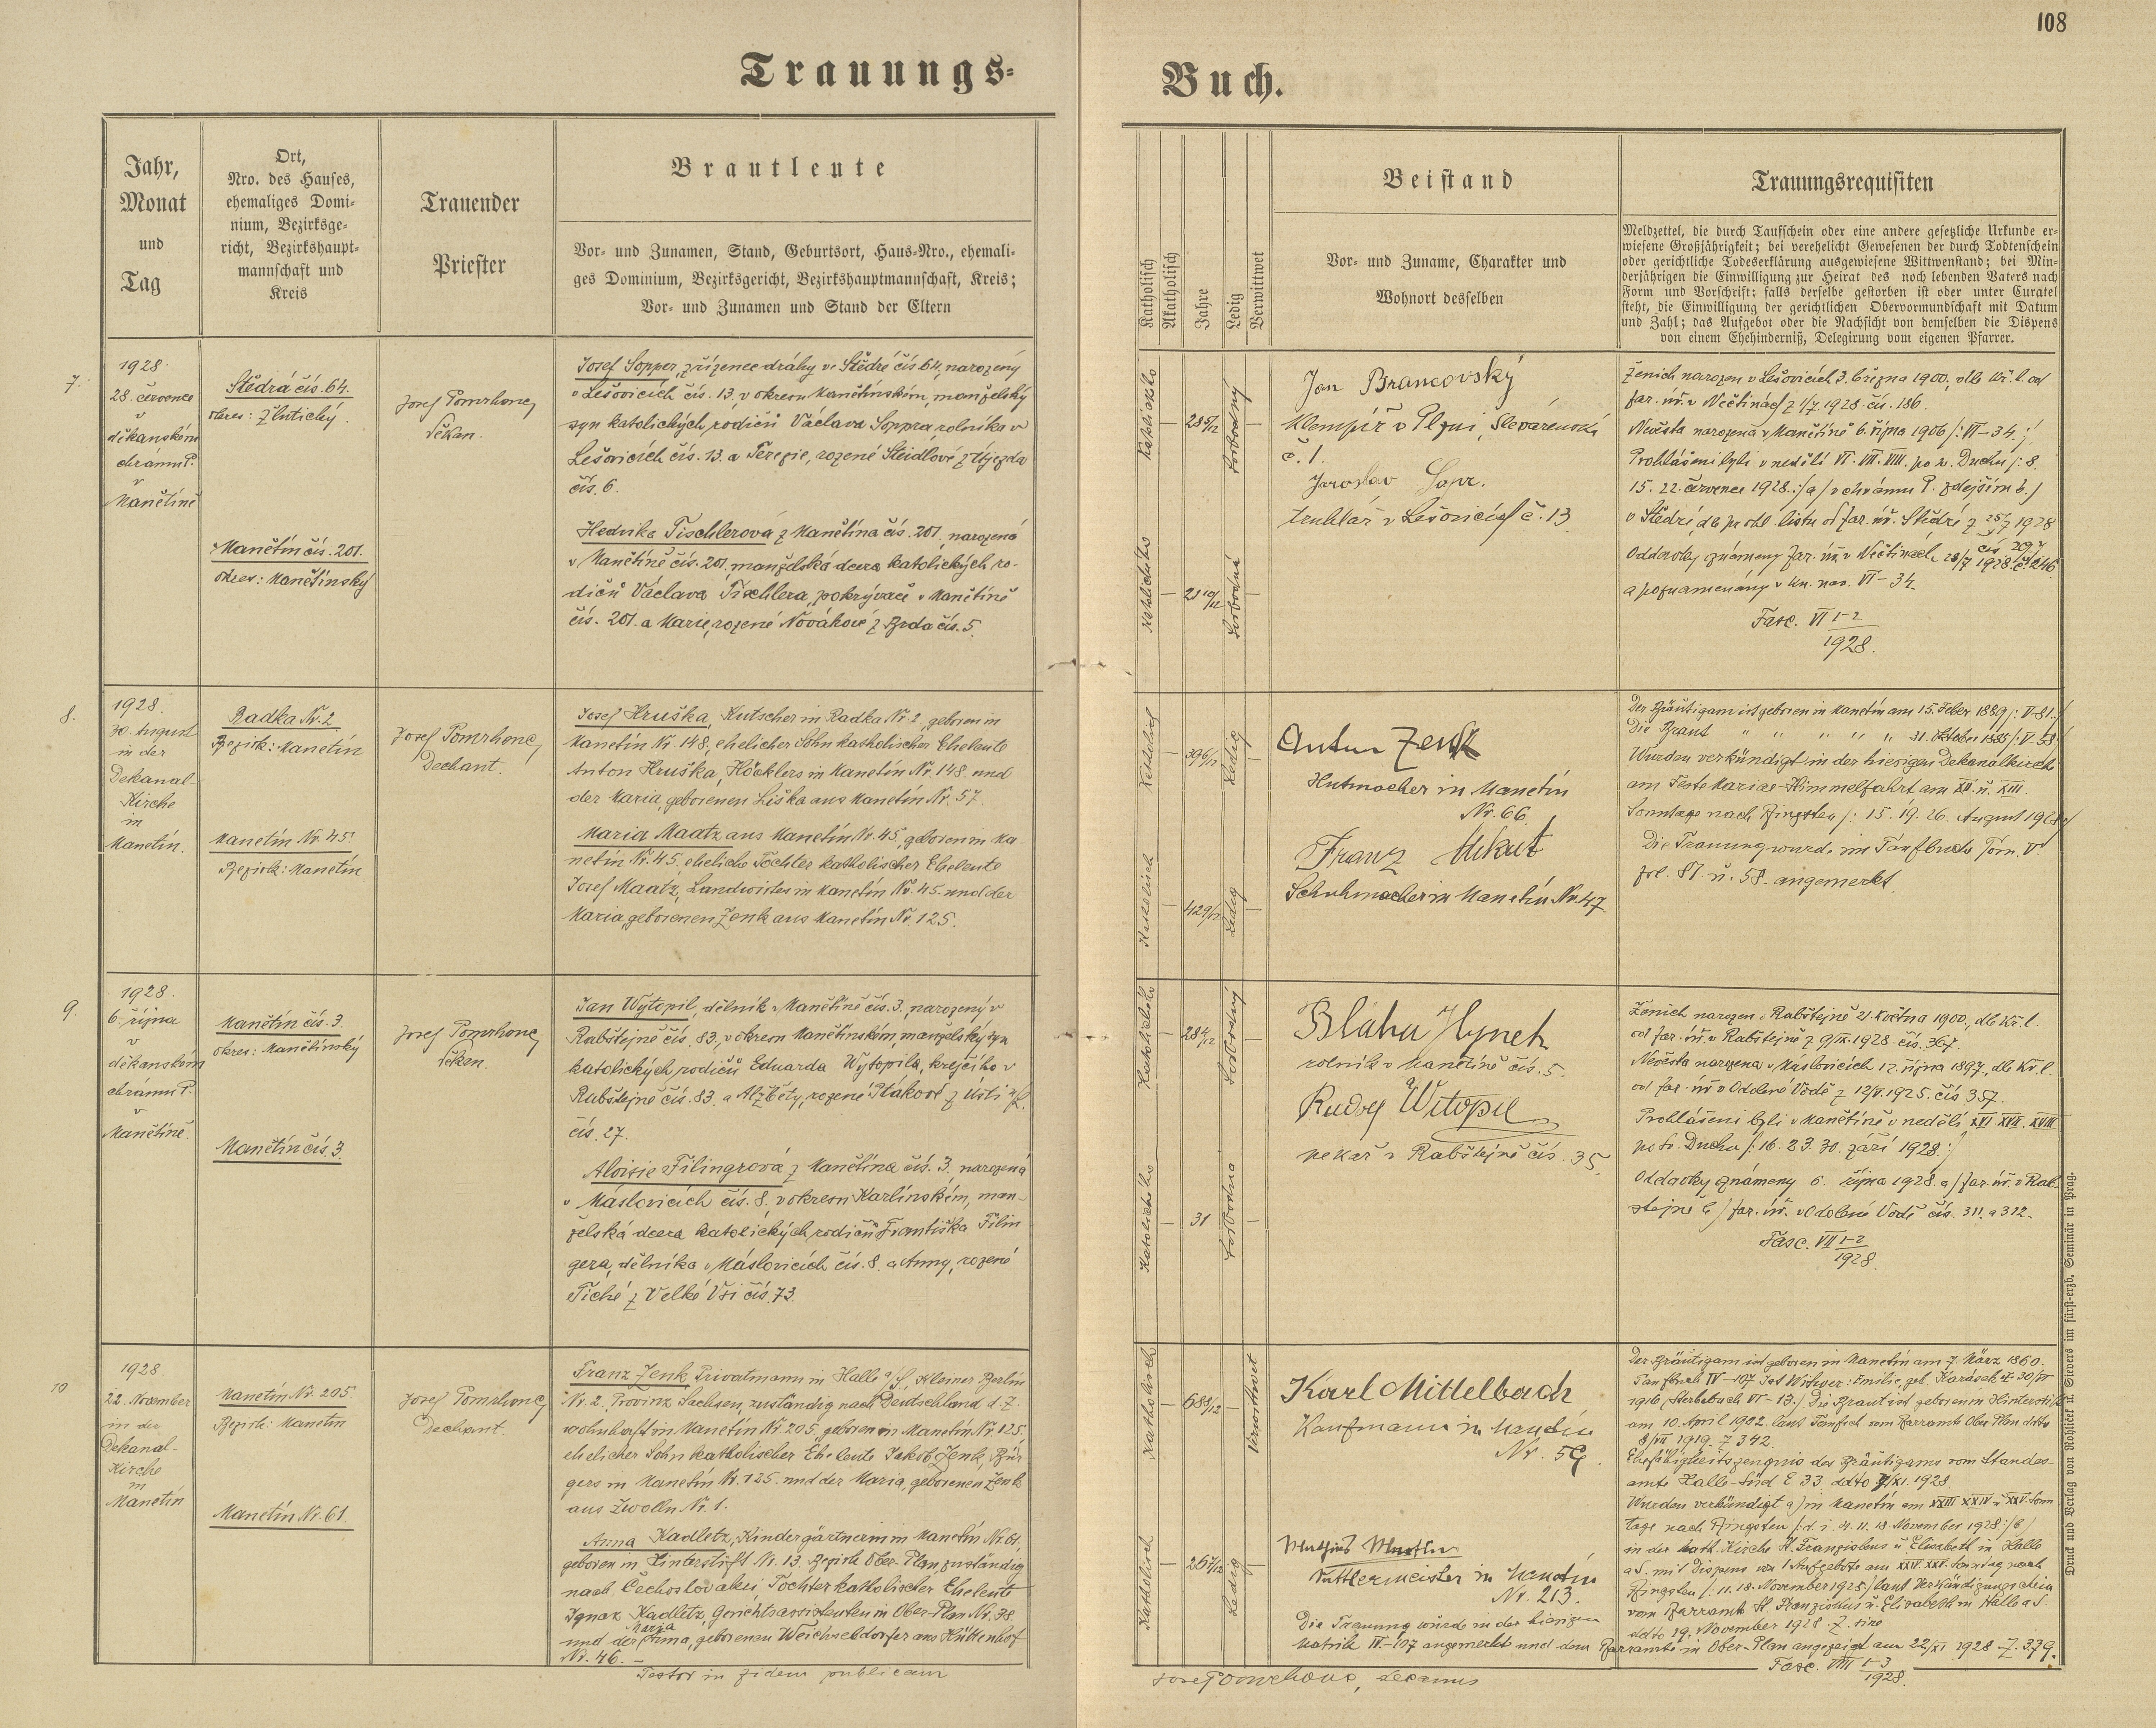 108
Trauungs-
Buch.
Jahr,
Monat
und
Tag
Ort,
Nro. des Hauses,
ehemaliges Domi-
nium, Bezirksge-
richt, Bezirkshaupt-
mannschaft und
Kreis
Trauender
Priester
Brautleute
Vor- und Zunamen, Stand, Geburtsort, Haus-Nro., ehemali-
ges Dominium, Bezirksgericht, Bezirkshauptmannschaft, Kreis;
Vor- und Zunamen und Stand der Eltern
Katholisch
Akatholisch
Jahre
Ledig
Verwittwet
Beistand
Vor- und Zuname, Charakter und
Wohnort desselben
Trauungsrequisiten
Meldzettel, die durch Taufschein oder eine andere gesetzliche Urkunde er-
wiesene Großjährigkeit; bei verehelicht Gewesenen der durch Todtenschein
oder gerichtliche Todeserklärung ausgewiesene Wittwenstand; bei Min-
derjährigen die Einwilligung zur Heirat des noch lebenden Vaters nach
Form und Vorschrift; falls derselbe gestorben ist oder unter Curatel
steht, die Einwilligung der gerichtlichen Obervormundschaft mit Datum
und Zahl; das Aufgebot oder die Nachsicht von demselben die Dispens
von einem Ehehinderniß, Delegirung vom eigenen Pfarrer.
7.
1928
28. července
v
děkanském
chrámu P.
v
Manětíně
Štědrá čís. 64.
okres: Žlutický.
Manětín čís. 201.
okres: Manětínský
Josef Pomrhonc,
děkan.
Josef Sopper, zřízenec dráhy ve Štědré čís 64, narozený
v Lešovicích čís. 13, v okresu Manětínském, manželský
syn katolických rodičů Václava Soppra, rolníka v
Lešovicích čís. 13. a Terezie, rozené Steidlové z Újezda
čís. 6.
Hedvika Tischlerová z Manětína čís. 201. narozená
v Manětíně čís. 201. manželská dcera katolických ro-
dičů Václava Tischlera, pokrývače v Manětíně
čís. 201. a Marie, rozené Novákové z Brda čís. 5.
28 5/12
svobodný
katolického
21 10/12
svobodná
Jan Brancovský
klempíř v Plzni, Slevárenská
č. 1.
Jaroslav Sopr.
truhlář v Lešovicích č. 13
Ženich narozen v Lešovicích 3. března 1900, dle kř. l. od
far. úř. v Nečtinách z 1/7 1928 čís. 186.
Nevěsta narozena v Manětíně 6. října 1906 /: VI-34. :/
Prohlášeni byli v neděli VI. VII. VIII. po sv. Duchu /: 8.
15. 22. července 1928.:/ a/ v chrámu P. zdejším b./
v Štědré, dle prohl. listu od far. úř. Štědré z 25/7 1928
čís. 297
Oddavky známeny far. úř. v Nečtinách 28/7 1928 č. 246
a poznamenány v kn. nar. VI-34.
Fasc. VI 1-2
1928.
8.
1928.
30. August
in der
Dekanal-
Kirche
in
Manetin.
Radka Nr. 2
Bezirk: Manetin
Manetin Nr. 45.
Bezirk: Manetin
Josef Pomrhonc,
Dechant.
Josef Hruška, Kutscher in Radka Nr. 2, geboren in
Manetin Nr. 148, ehelicher Sohn katholischer Eheleute
Anton Hruška, Höcklers in Manetin Nr. 148. und
der Maria, geborenen Liška aus Manetin Nr. 57.
Maria Maatz aus Manetin Nr. 45, geboren in Ma-
netin Nr. 45, eheliche Tochter katholischer Eheleute
Josef Maatz, Landwirtes in Manetin Nr. 45 und der
Maria, geborenen Zenk aus Manetin Nr. 125.
Katholisch
39 6/12
Ledig
Katholisch
42 9/12
Ledig
Anton Zenk
Hutmacher in Manetin
Nr. 66.
Franz Mikut
Schuhmacher in Manetin Nr. 47.
Der Bräutigam ist geboren in Manetin am 15. Feber 1889 /: V-81. :/
Die Braut " " " " " 31. Oktober 1885 /: V-58 :/
Wurden verkündigt in der hiesigen Dekanalkirche
am Feste Mariae-Himmelfahrt am XII. u. XIII.
Sonntage nach Pfingsten /: 15. 19. 26. August 1928 :/
Die Trauung wurde im Taufbuche Tom. V.
fol. 81. u. 58. angemerkt.
9.
1928.
6. října
v
děkanském
chrámu P.
v
Manětíně.
Manětín čís. 3.
okres: Manětínský
Manětín čís. 3.
Josef Pomrhonc,
děkan.
Jan Wytopil, dělník v Manětíně čís. 3., narozený v
Rabštejně čís. 83., v okresu Manětínském, manželský syn
katolických rodičů Eduarda Wytopila, krejčího v
Rabštejně čís. 83. a Alžběty, rozené Ptákové z Ústí n/L.
čís. 27.
Aloisie Filingrová z Manětína čís. 3. narozená
v Máslovicích čís. 8., v okresu Karlínském, man-
želská dcera katolických rodičů Františka Filin
gera, dělníka v Máslovicích čís. 8. a Anny, rozené
Tiché z Velké Vsi čís. 73.
Katolického
28 4/12
svobodný
Katolického
31
svobodná
Bláha Hynek
rolník v Manětíně čís. 5.
Rudolf Witopil
pekař v Rabštejně čís. 35.
Ženich narozen v Rabštejně 21. května 1900., dle kř. l.
od far. úř. v Rabštejně z 9/IX. 1928. čís. 367.
Nevěsta narozena v Máslovicích 12. října 1897., dle kř. l.
od far. úř. v Odolené Vodě z 12/V. 1925. čís 357.
Prohlášeni byli v Manětíně v neděli XVI. XVII. XVIII
po sv. Duchu /: 16. 23. 30. září 1928 :/
Oddavky známeny 6. října 1928. a/ far. úř. v Rab-
štejně b/ far. úř. v Odolené Vodě čís. 311. a 312.
Fasc. VII 1-2
1928.
10
1928
22. November
in der
Dekanal-
Kirche
in
Manetin
Manetin Nr. 205.
Bezirk: Manetin
Manetin Nr. 61.
Josef Pomrhonc,
Dechant.
Franz Zenk, Privatmann in Halle a/S., Kleiner Berlin
Nr. 2, Provinz Sachsen, zuständig nach Deutschland d. Z.
wohnhaft in Manetin Nr. 205, geboren in Manetin Nr. 125.
ehelicher Sohn katholischer Eheleute Jakob Zenk, Bür
gers in Manetin Nr. 125. und der Maria, geborenen Zenk
aus Zwolln Nr. 1.
Anna Kadletz, Kindergärtnerin in Manetin Nr. 61,
geboren in Hinterstift Nr. 13. Bezirk Ober-Plan, zuständig
nach Čechoslovakei, Tochter katholischer Eheleute
Ignaz Kadletz, Gerichtsassistenten in Ober-Plan Nr. 38.
Maria
und der Anna, geborenen Weichseldorfer aus Hüttenhof
Nr. 46. —
Katholisch
68 8/12
Verwittwet
Katholisch
26 7/12
Ledig
Karl Mittelbach
Kaufmann in Manetin
Nr. 59.
in Manetin
Nr. 213.
Die Trauung wurde in der hiesigen
Matrik IV-107 angemerkt und dem Pfarramte in Ober-Plan angezeigt am 22/XI 1928 Z. 379.
Der Bräutigam ist geboren in Manetin am 7. März 1860.
Taufbuch IV-107. Ist Witwer: Emilie, geb. Karásek
1916, Sterbebuch VI-13./ Die Braut ist geboren in Hinterstift
am 10. April 1902. laut Taufsch. vom Pfarramte Ober-Plan ddto
8/VII 1919. Z. 342.
Ehefähigkeitszeugnis des Bräutigams vom Standes-
amte Halle-Süd E 33. ddto /XI. 1928.
Wurden verkündigt a) in Manetin am XXIII XXIV u XXV. Sonn
tage nach Pfingsten /: d. i. 4. 11. 18 November 1928 :/ b)
in der kath. Kirche St. Franziskus u. Elisabeth in Halle
a S. mit Dispens von 1 Aufgebote am XXIV. XXV. Sonntag nach
Pfingsten /: 11. 18. November 1928 :/ laut Verkündigungschein
vom Pfarramte St. Franziskus u. Elisabeth in Halle a S.
ddto 19. November 1928 Z. sine
Fasc. VIII 1-3
1928.
Testor in fidem publicam
Josef Pomrhonc, decanus
Druck und Verlag von Rohliček u. Sievers im fürst-erzb. Seminär in Prag.